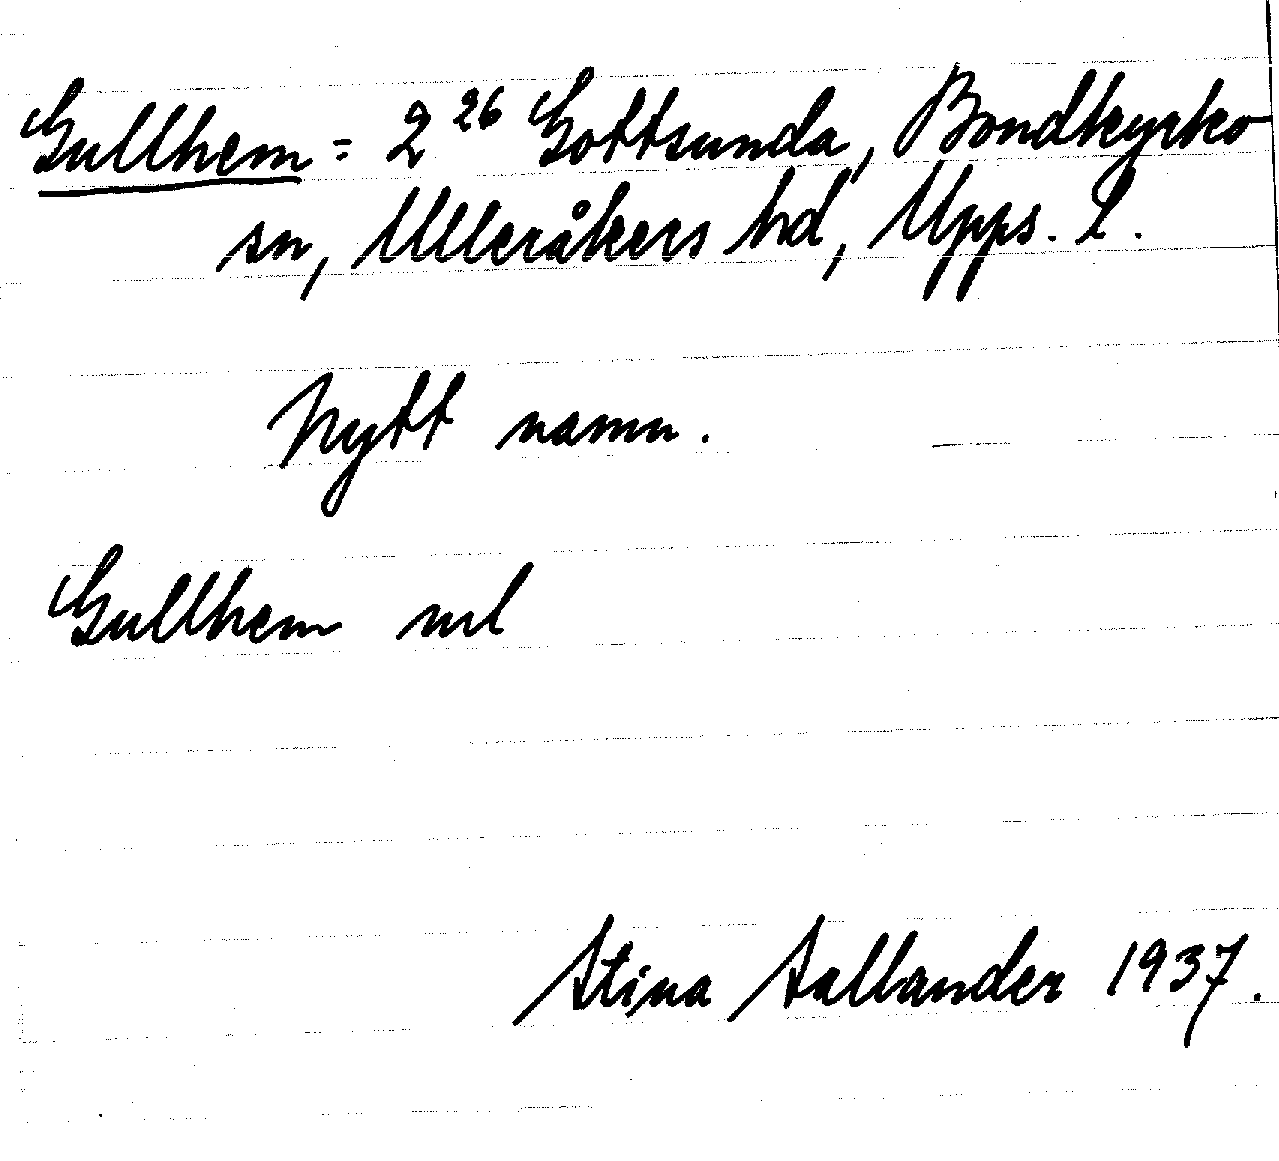 Gullhem = 2 26 Gottsunda, Bondkyrko
sn, Ulleråkers hd, Upps. L.
Nytt namn.
Gullhem url
Stina Sallander 1937.